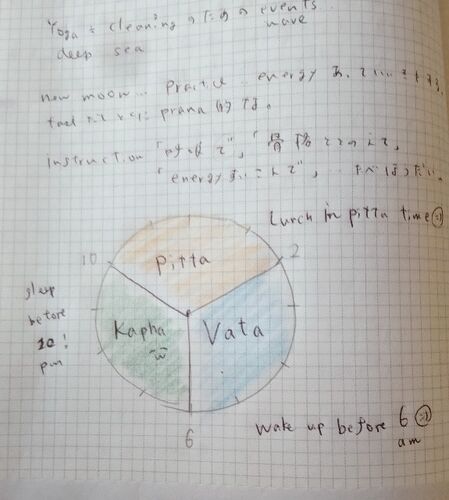 Yoga = cleaning のための events.
wave
deep sea
new moon... Practice .. energy
fast prana 的な。
instruction 「呼吸で」, 「骨格ととのえて,
「energy すいこんで」, ..
Lunch in pitta time
10
Pitta
2
sleep
before
10!
pm
Kapha
Vata
6
wake up before 6
am